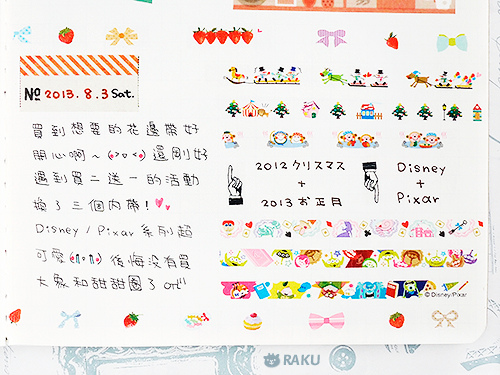 № 2013.8.3 Sat.
買到想要的花邊帶好
開心啊～(>v<)還剛好
遇到買二送一的活動
換了三個內帶!♥♥
Disney / Pixar 系列超
可愛 後悔沒有買
大象和甜甜圈了 orz
2012 クリスマス
+
2013 お正月
Disney
+
Pixar
© Disney/Pixar
RAKU